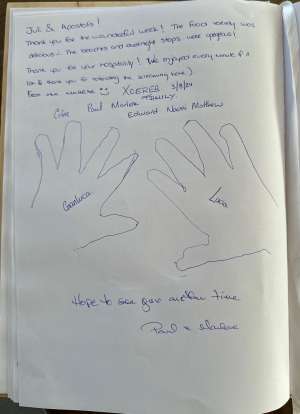 Juli & Apostolis!
Thank you for the wonderful week! The food variety was
delicious! The beaches and overnight stops were gorgeous!
Thank you for your hospitality! We enjoyed every minute of it
(or & thank you for tolerating the screaming here)
Best ever 😊 XUEREB 3/8/24
FAMILY.
Paul Marlene
Edward Naomi Matthew
Gianluca
Luca
Hope to see you another time
Paul & Marlene